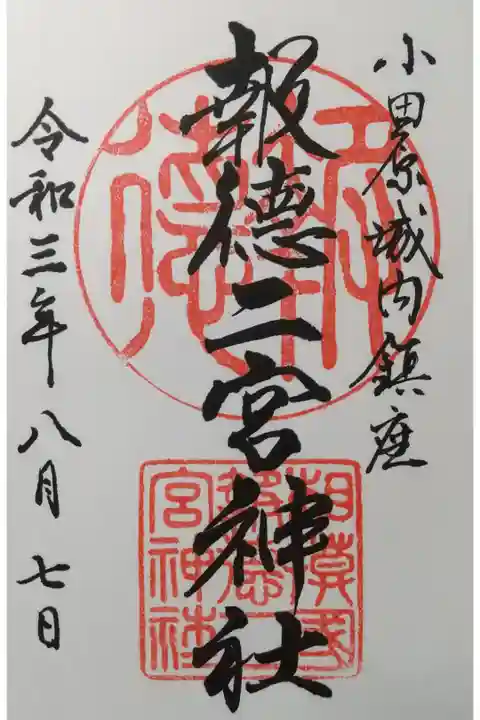 小田原城内鎮座
報徳二宮神社
令和三年八月七日
相模国
報徳二
宮神社